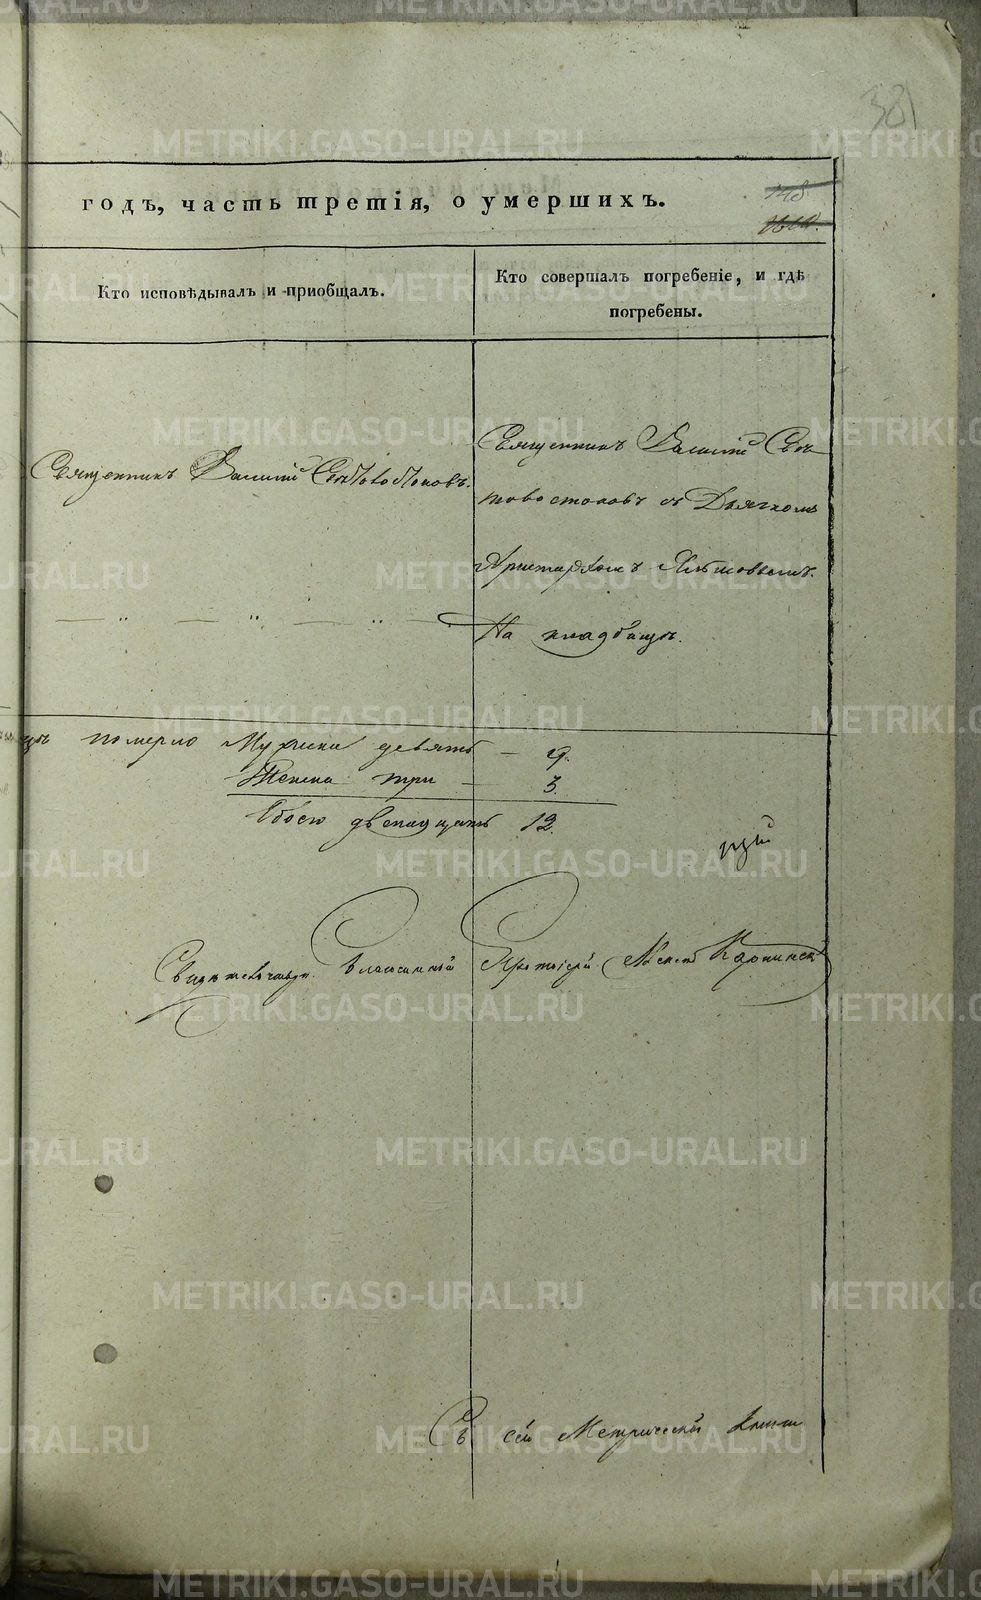 381
годъ, часть третія, о умершихъ.
148
Кто исповѣдывалъ и пріобщалъ.
Кто совершалъ погребеніе, и гдѣ
погребены.
Священникъ Василій
Священникъ Василій Свѣ
товостоковъ съ Дьячкомъ
Аристархомъ
На кладбищѣ.
померло Мужеска девять — 9.
Женска три — 3.
Обоего двенадцать 12.
Благочинный Протоіерей
Въ сей Метрической книги
METRIKI.GASO-URAL.RU